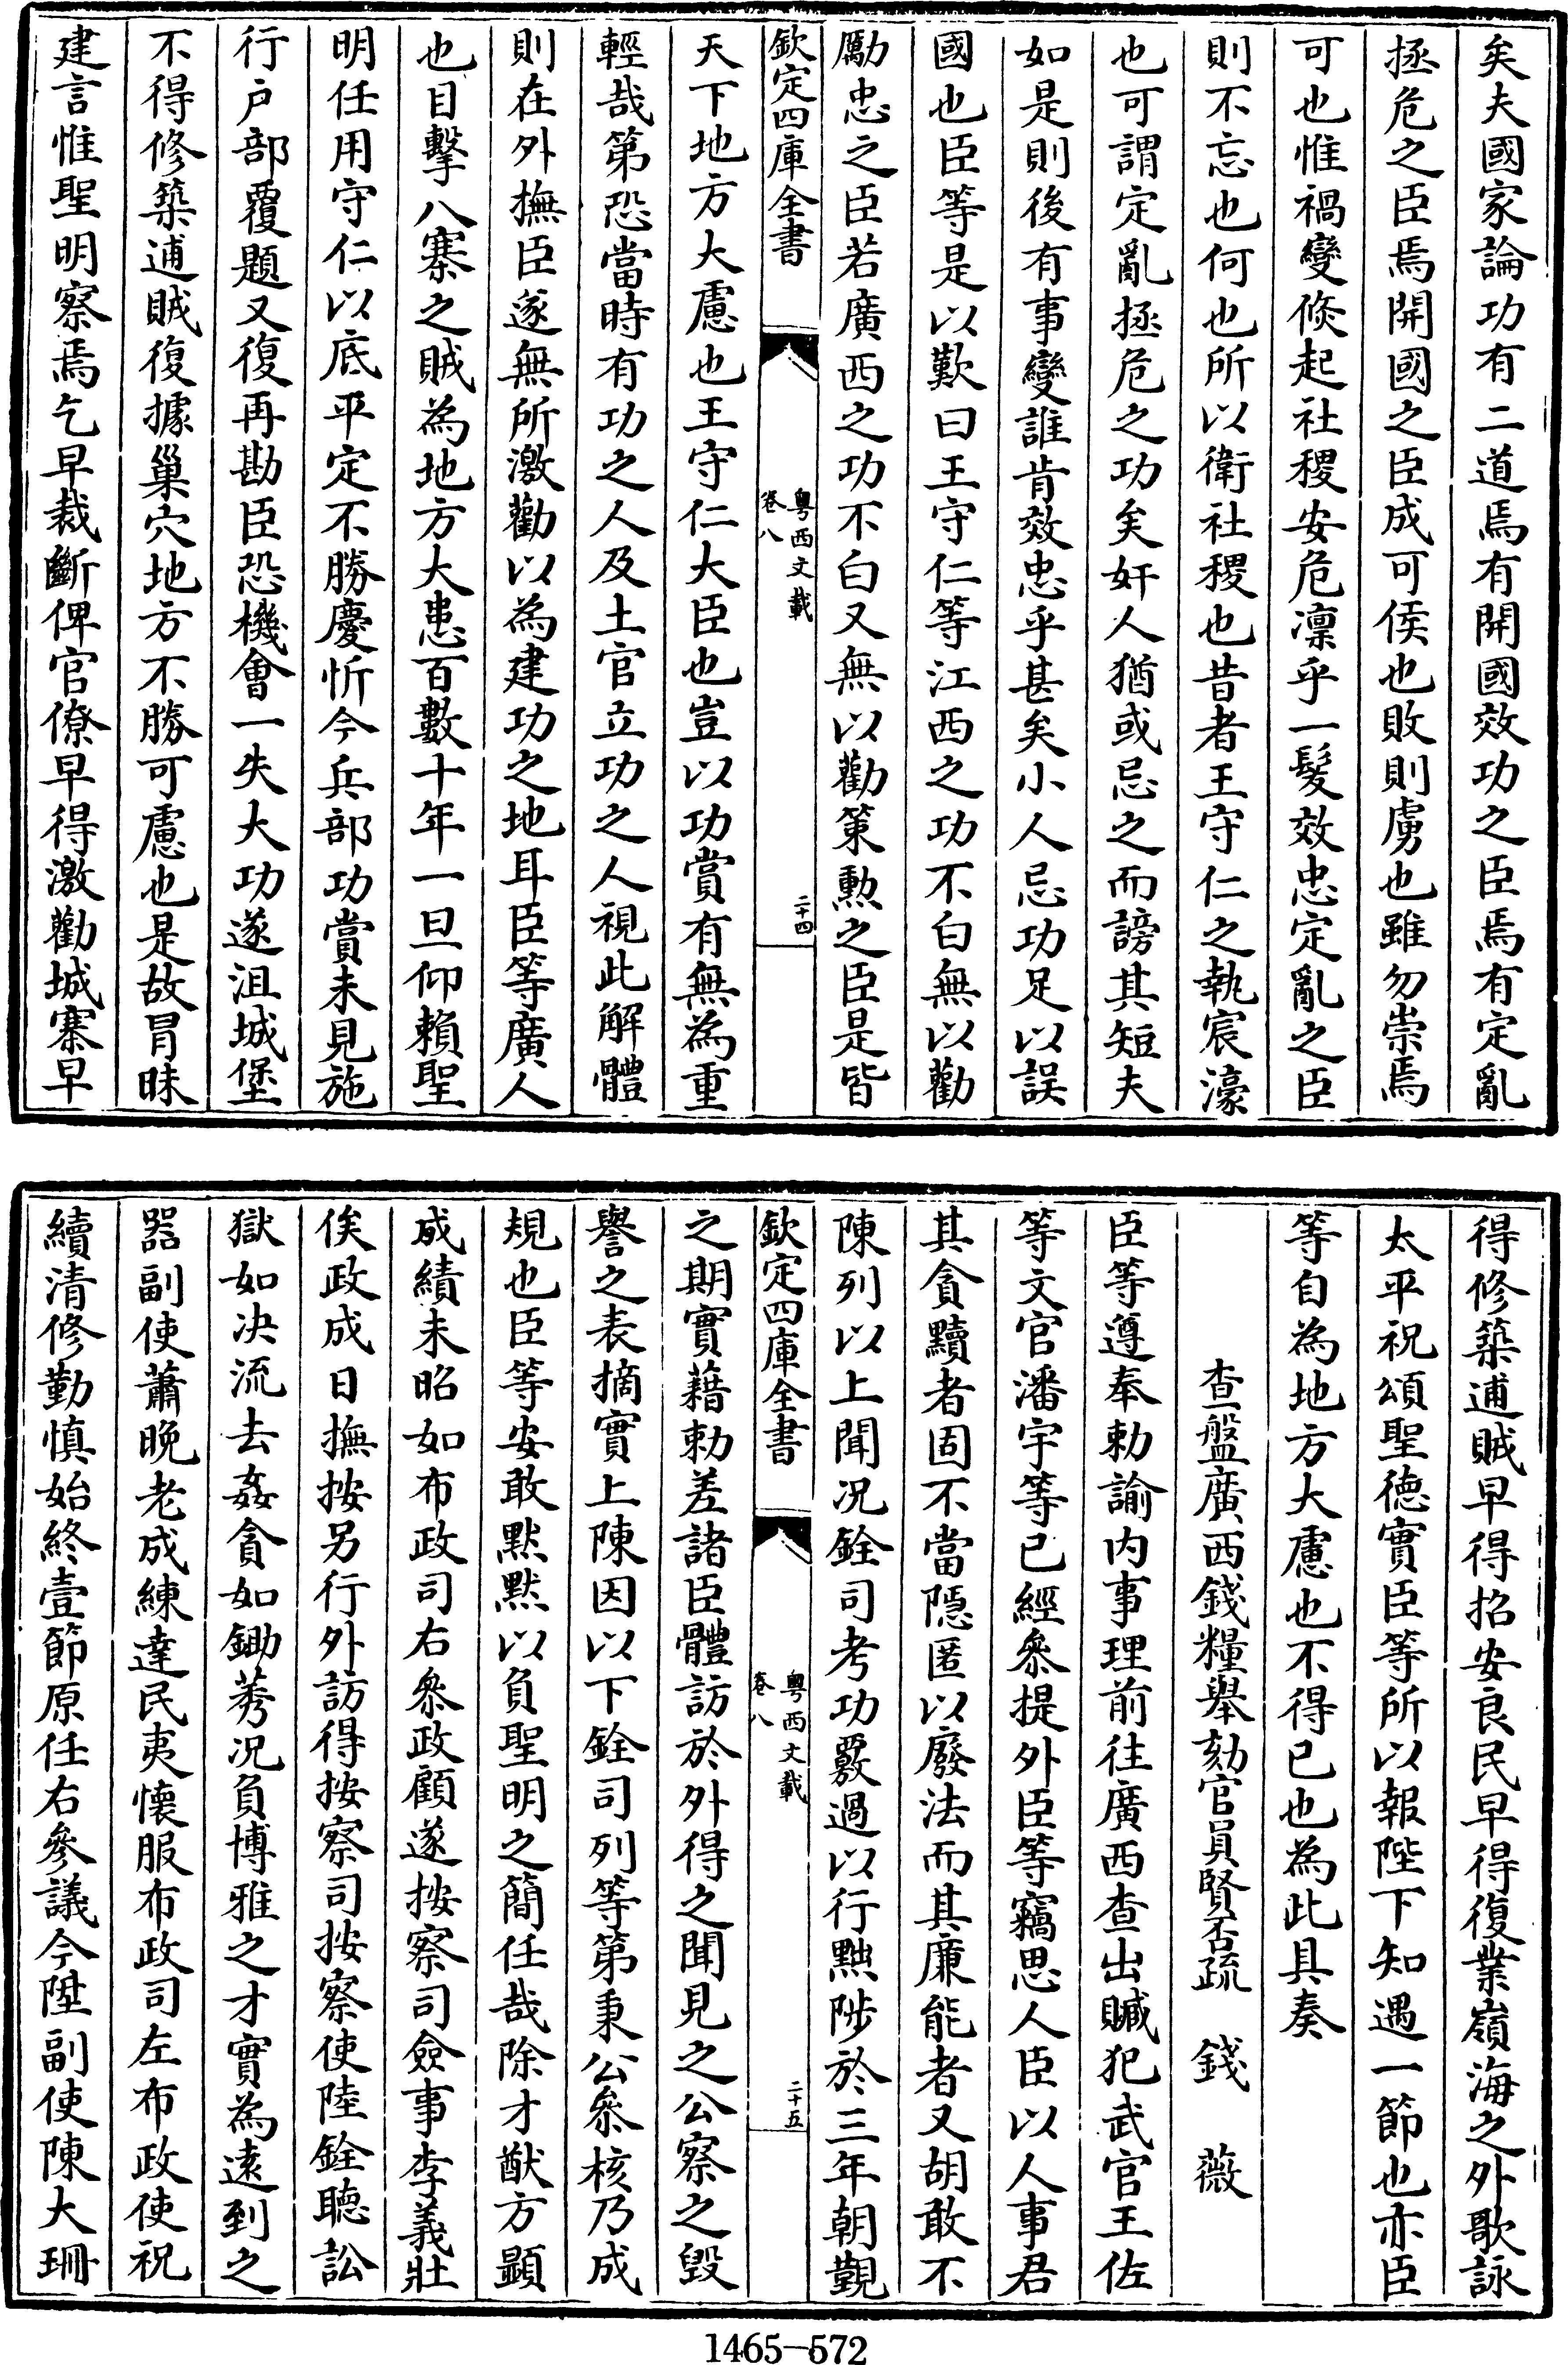 矣夫國家論功有二道焉有開國效功之臣焉有定亂
拯危之臣焉開國之臣成可侯也敗則虜也雖勿崇焉
可也惟禍變倐起社稷安危凛乎一髮效忠定亂之臣
則不忘也何也所以衛社稷也昔者王守仁之執宸濠
也可謂定亂拯危之功矣奸人猶或忌之而謗其短夫
如是則後有事變誰肯效忠乎甚矣小人忌功足以誤
國也臣等是以歎曰王守仁等江西之功不白無以勸
勵忠之臣若廣西之功不白又無以勸策勲之臣是皆
欽定四庫全書
粤西文載
卷八
二十四
天下地方大慮也王守仁大臣也豈以功賞有無為重
輕哉第恐當時有功之人及土官立功之人視此解體
則在外撫臣遂無所激勸以為建功之地耳臣等廣人
也目擊八寨之賊為地方大患百數十年一旦仰賴聖
明任用守仁以底平定不勝慶忻今兵部功賞未見施
行户部覆題又復再勘臣恐機會一失大功遂沮城堡
不得修築逋賊復據巢穴地方不勝可慮也是故冒昧
建言惟聖明察焉乞早裁斷俾官僚早得激勸城寨早
得修築逋賊早得招安良民早得復業嶺海之外歌詠
太平祝頌聖德實臣等所以報陛下知遇一節也亦臣
等自為地方大慮也不得已也為此具奏
查盤廣西錢糧舉劾官員賢否疏 錢 薇
臣等遵奉勅諭内事理前往廣西查出贓犯武官王佐
等文官潘宇等已經叅提外臣等竊思人臣以人事君
其貪黷者固不當隠匿以廢法而其廉能者又胡敢不
陳列以上聞况銓司考功覈過以行黜陟於三年朝覲
欽定四庫全書
粤西文載
卷八
二十五
之期實藉勅差諸臣體訪於外得之聞見之公察之毀
譽之表摘實上陳因以下銓司列等第秉公叅核乃成
規也臣等安敢黙黙以負聖明之簡任哉除才猷方顯
成績未昭如布政司右叅政顧遂按察司僉事李義壯
俟政成日撫按另行外訪得按察司按察使陸銓聽訟
獄如决流去姦貪如鋤莠况負博雅之才實為遠到之
器副使蕭晚老成練達民夷懷服布政司左布政使祝
續清修勤慎始終壹節原任右參議今陞副使陳大珊
1465-572